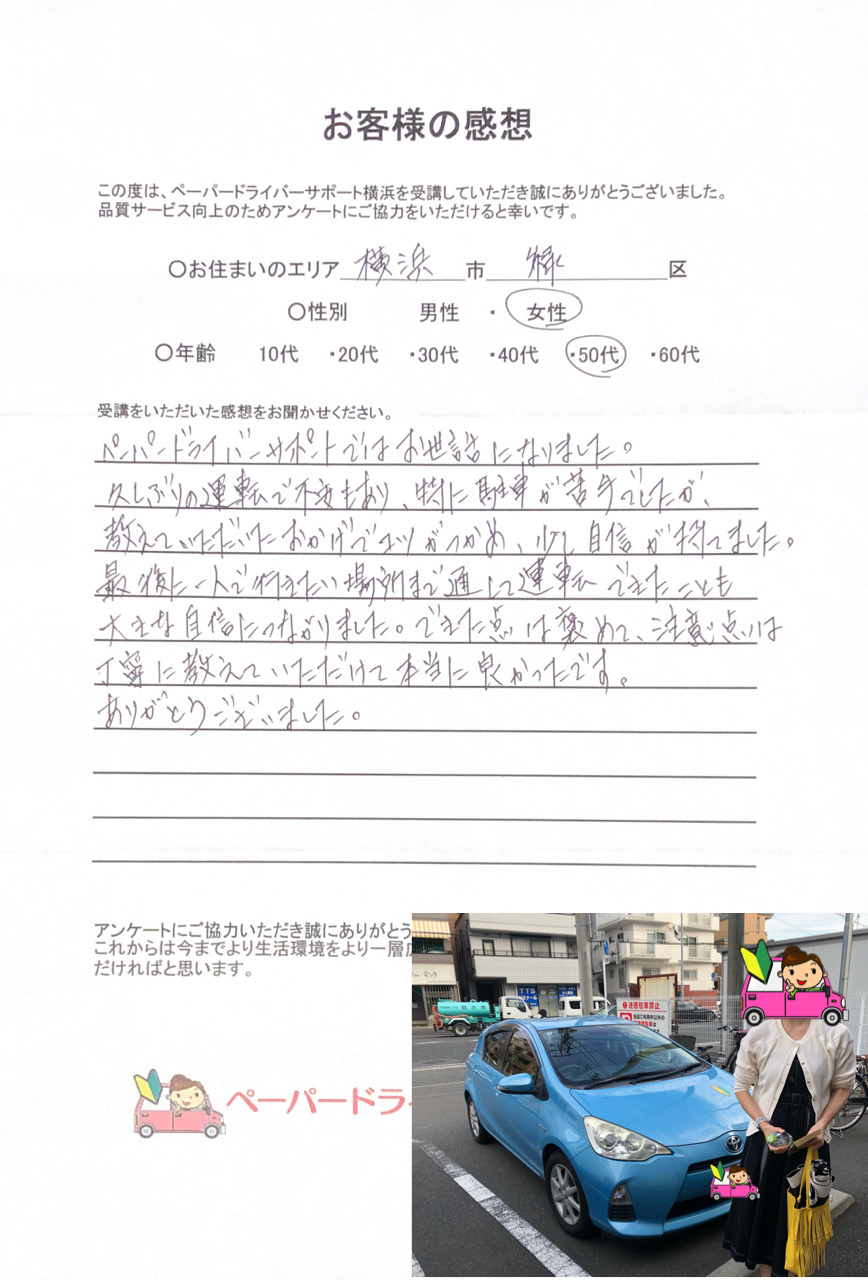 お客様の感想
この度は、ペーパードライバーサポート横浜を受講していただき誠にありがとうございました。
品質サービス向上のためアンケートにご協力をいただけると幸いです。
〇お住まいのエリア 横浜 市 緑 区
〇性別 男性 ・ 女性
〇年齢 10代 ・20代 ・30代 ・40代 ・50代 ・60代
受講をいただいた感想をお聞かせください。
ペーパードライバーサポートではお世話になりました。
久しぶりの運転で不安もあり、特に駐車が苦手でしたが、
教えていただいたおかげでコツがつかめ、少し自信が持てました。
最後に一人で行きたい場所まで通して運転できたことも
大きな自信につながりました。できた点は褒めて、注意点は
丁寧に教えていただけて本当に良かったです。
ありがとうございました。
アンケートにご協力いただき誠にありがとう
これからは今までより生活環境をより一層広
だければと思います。
ペーパードライ
TTS
迷惑駐車禁止